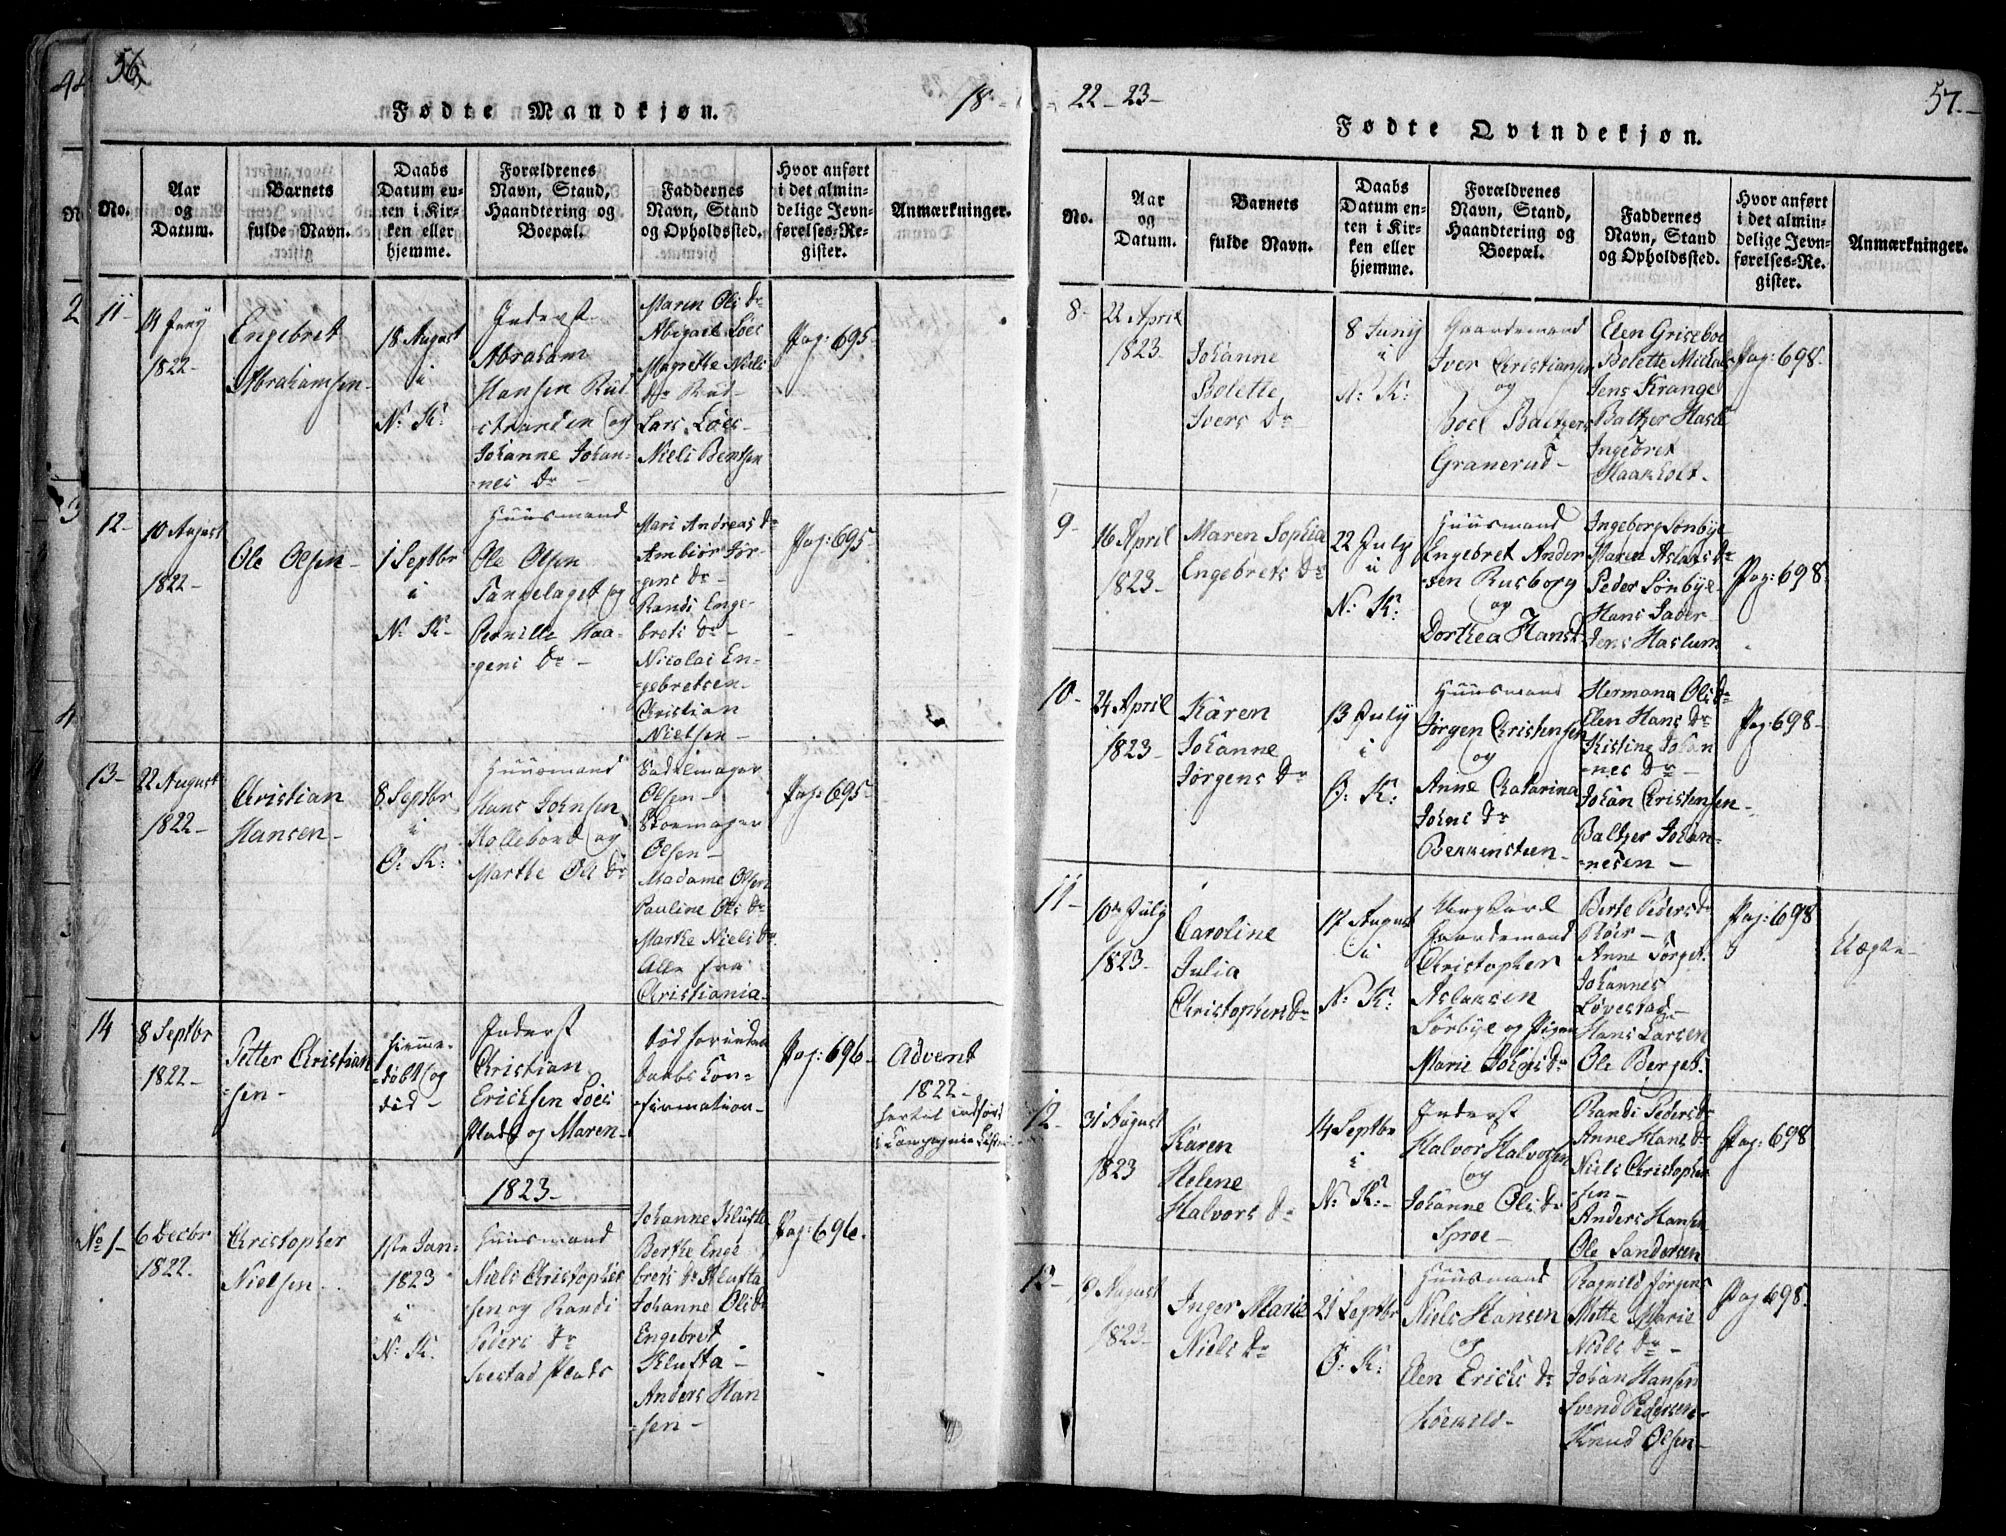 56.
18
Fødte Mandkjøn.
No.
Aar
og
Datum.
Barnets
fulde Navn.
Daabs
Datum en-
ten i Kir-
ken eller
hjemme.
Forældrenes
Navn, Stand,
Haandtering og
Boepæl.
Faddernes
Navn, Stand
og Opholdssted.
Hvor anført
i det almin-
delige Jevn-
førelses-Re-
gister.
Anmærkninger.
11-
1822-
Engebret
Abrahamsen-
18 August
i
N: K:
Inderst
Abraham
Hansen Rud
stranden og
Johanne Johan-
nes Dr-
Maren Ols Dr
Abigael Loes
Magrethe Niels
Dr Rud-
Lars Loes-
Niels Bentsen
Pag: 695-
12-
10 August
1822-
Ole Olsen-
1 Septbr
i
N: K-
Huusmand
Ole Olsen
Tangelaget og
Pernille Haa-
gens Dr-
Mari Andreas Dr
Ambiør Jør-
gens Dr-
Randi Enge-
brets Dr-
Nicolai En-
gebretsen-
Christian
Nielsen-
Pag: 695-
13-
22 August
1822-
Christian
Hansen-
8 Septbr
i
O: K:
Huusmand
Hans Johnsen
Kollebond og
Marthe Ols Dr
Sadelmager
Olsen-
Skoemager
Olsen-
Madame Olsen
Pauline Ols Dr
Marthe Niels Dr
Alle fra
Christiania-
Pag: 695-
14
8 Septbr
1822-
Petter Christian
-sen-
hjemme-
døbt og
død-
Inderst
Christian
Ericksen Loes
Plads og Maren-
død forinden
Daabs Con-
firmation-
Pag: 696-
Advent
1822-
1823-
No 1-
6 Decbr
1822-
Christopher
Nielsen
1ste Jan-
1823
i
N: K.
Huusmand
Niels Christopher
sen og Randi
Peders Dr
Svestad Plads
Johanne Klufte
Berthe Enge
brets Dr Klufta
Johanne Ols Dr
Engebret
Klufta-
Anders Han
sen-
Pag: 696-
22-23-
57.-
Fødte Qvindekjøn.
No.
Aar
og
Datum.
Barnets
fulde Navn.
Daabs
Datum en-
ten i Kir-
ken eller
hjemme.
Forældrenes
Navn, Stand,
Haandtering og
Boepæl.
Faddernes
Navn, Stand
og Opholdssted.
Hvor anført
i det almin-
delige Jevn-
førelses-Re-
gister.
Anmærkninger.
8-
22 April
1823-
Johanne
Bolette
Ivers Dr
8 Juny
i
N: K:
Gaardemand
Iver Christiansen
og
Boel Baltzers
Granerud-
Elen Griseboe
Bolette Michels
Jens Krange
Baltzer Hasle
Ingebret
Haakholt-
Pag: 698-
9-
16 April
1823-
Maren Sophia
Engebrets Dr
22 July
i
N: K:
Huusmand
Engebret Ander
-sen Rusborg
og
Dorthea Hans Dr
Ingeborg Sønbye
Maren Aslaks Dr
Peder Sønbye-
Hans Sader
Jens Haslum
Pag: 698-
10-
24 April
1823-
Karen
Johanne
Jørgens Dr
13 July
i
O: K:
Huusmand
Jørgen Christensen
og
Anne Catarina
Johns Dr
Bekkensteen-
Hermana Ols Dr
Elen Hans Dr
Kistine Johan
-nes Dr-
Johan Christensen-
Baltzer Johan-
-nesen-
Pag: 698-
11-
10de July
1823-
Caroline
Julia
Christophers Dr
17 August
i
N: K:
Ungkarl
Gaardemand
Christopher
Aslaksen
Sørbye og Pigen
Marie Johns Dr
Berte Peders Dr
Røer-
Anne Torget
Johannes
Løvestad-
Hans Larsen
Ole Berget-
Pag: 698
Uægte-
12-
31 August
1823
Karen
Helene
Halvors Dr
14 Septbr
i
N: K:
Inderst
Halvor Halvorsen
og
Johanne Ols Dr
Sproe-
Randi Peders Dr
Anne Hans Dr
Niels Christopher
-sen-
Anders Hansen
Ole Sandersen
Pag: 698
13-
9 August
1823-
Inger Marie
Niels Dr
21 Septbr
i
O: K:
Huusmand
Niels Hansen
og
Elen Ericks Dr
Ragnild Jørgens
Mette Marie
Niels Dr-
Johan Hansen
Svend Pedersen-
Knud Olsen-
Pag 698.